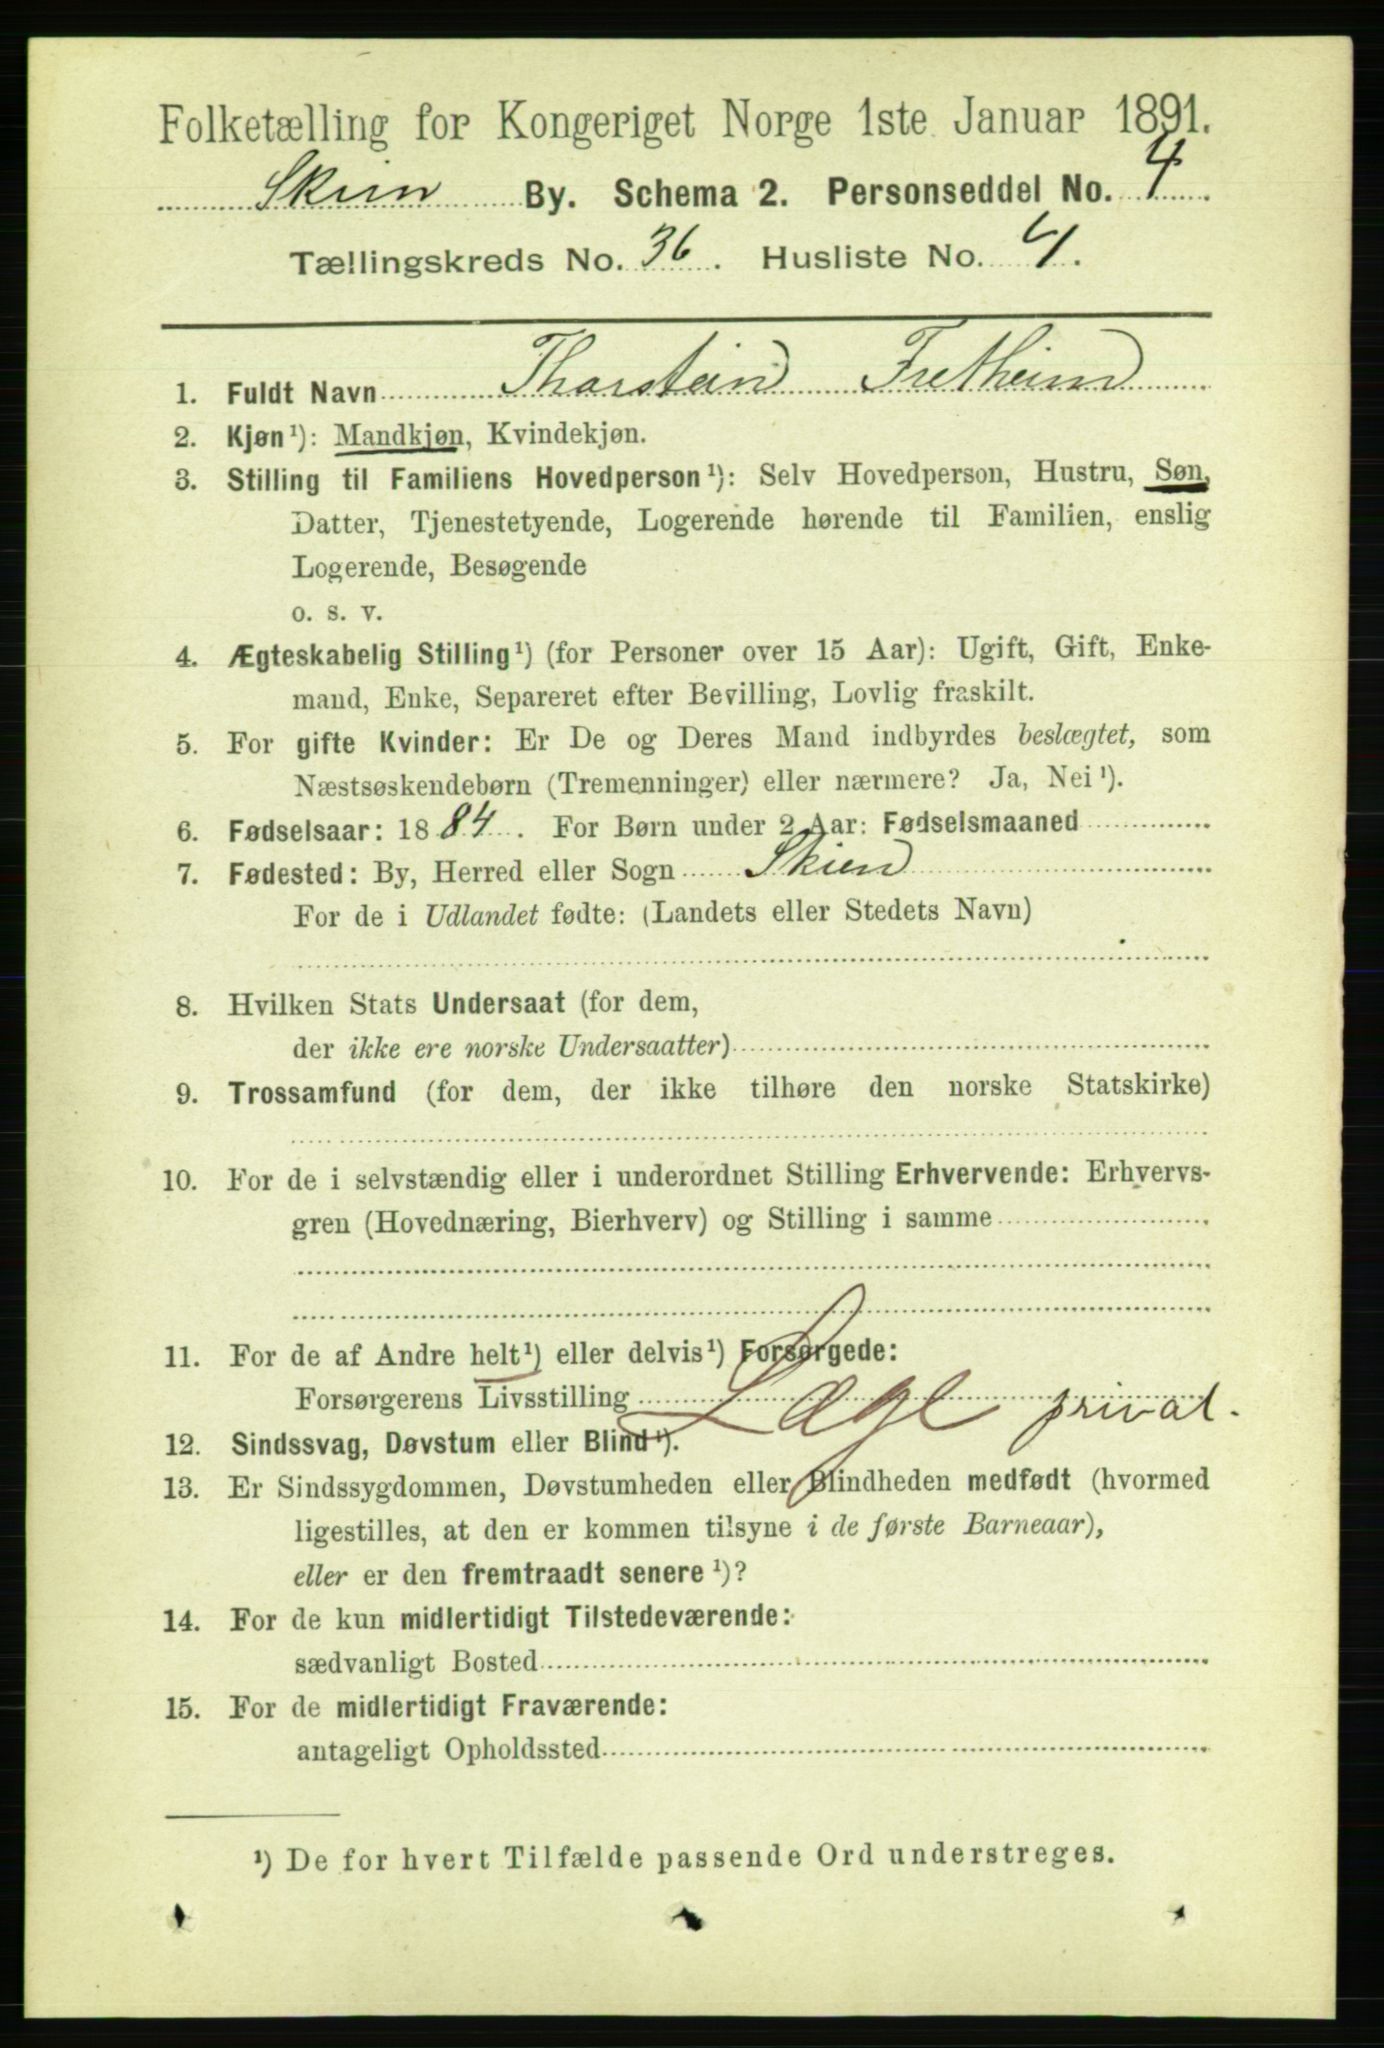 Folketælling for Kongeriget Norge 1ste Januar 1891.
Skien By. Schema 2. Personseddel No. 4
Tællingskreds No. 36. Husliste No. 4.
1. Fuldt Navn Thorstein Fretheim
2. Kjøn¹): Mandkjøn, Kvindekjøn.
3. Stilling til Familiens Hovedperson¹): Selv Hovedperson, Hustru, Søn,
Datter, Tjenestetyende, Logerende hørende til Familien, enslig
Logerende, Besøgende
o. s. v.
4. Ægteskabelig Stilling¹) (for Personer over 15 Aar): Ugift, Gift, Enke-
mand, Enke, Separeret efter Bevilling, Lovlig fraskilt.
5. For gifte Kvinder: Er De og Deres Mand indbyrdes beslægtet, som
Næstsøskendebørn (Tremenninger) eller nærmere? Ja, Nei¹).
6. Fødselsaar: 1884. For Børn under 2 Aar: Fødselsmaaned
7. Fødested: By, Herred eller Sogn Skien
For de i Udlandet fødte: (Landets eller Stedets Navn)
8. Hvilken Stats Undersaat (for dem,
der ikke ere norske Undersaatter)
9. Trossamfund (for dem, der ikke tilhøre den norske Statskirke)
10. For de i selvstændig eller i underordnet Stilling Erhvervende: Erhvervs-
gren (Hovednæring, Bierhverv) og Stilling i samme
11. For de af Andre helt¹) eller delvis¹) Forsørgede:
Forsørgerens Livsstilling Læge privat.
12. Sindssvag, Døvstum eller Blind¹).
13. Er Sindssygdommen, Døvstumheden eller Blindheden medfødt (hvormed
ligestilles, at den er kommen tilsyne i de første Barneaar),
eller er den fremtraadt senere¹)?
14. For de kun midlertidigt Tilstedeværende:
sædvanligt Bosted
15. For de midlertidigt Fraværende:
antageligt Opholdssted
¹) De for hvert Tilfælde passende Ord understreges.